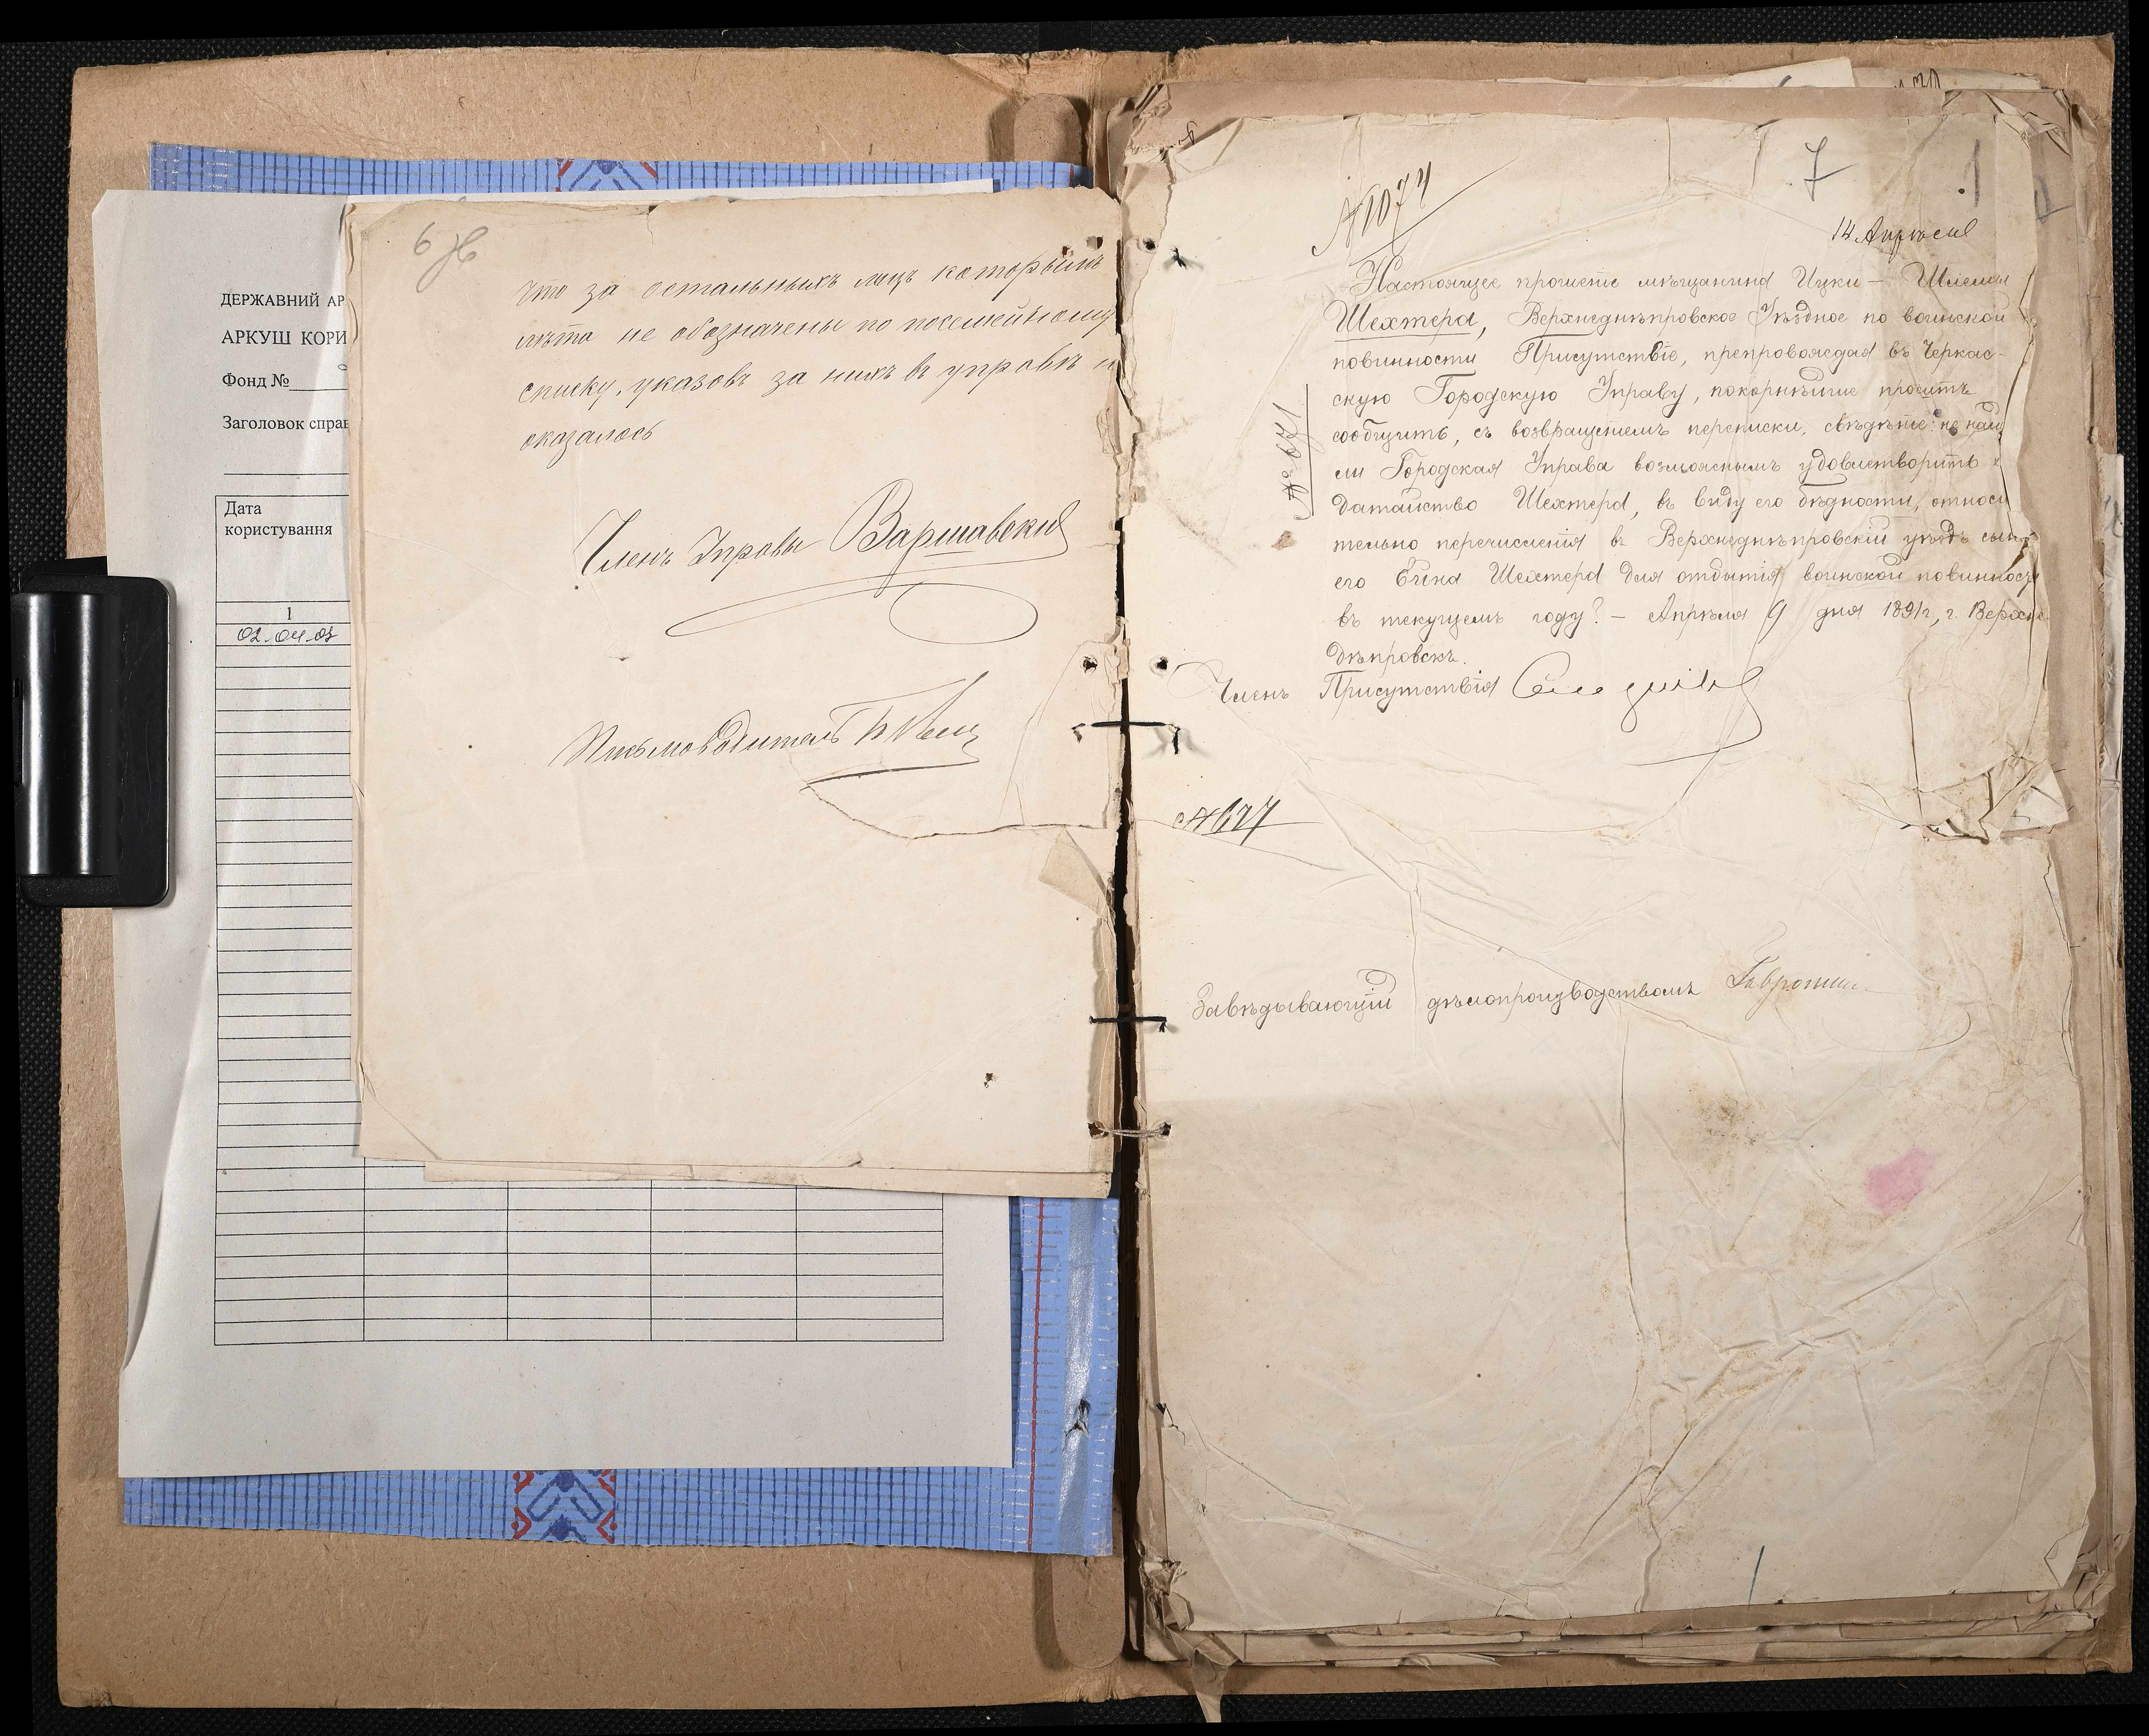 ДЕРЖАВНИЙ АР
АРКУШ КОРИ
Фонд №
Заголовок справ
Дата
користування
1
02.04.03
6
что за остальныхъ лицъ которымъ
лѣта не обозначены по посемейному
списку, указовъ за нихъ въ управѣ н
оказалось
Членъ Управы Варшавскій
Письмоводитель
7
1
№1074
14 Апрѣля
Настоящее прошеніе мѣщанина Ицки – Шлемы
Шехтера, Верхнеднѣпровское Уѣздное по воинской
повинности Присутствіе, препровождая въ Черкас-
скую Городскую Управу, покорнѣйше проситъ
сообщить, съ возвращеніемъ переписки, свѣдѣніе: не най
ли Городская Управа возможнымъ удовлетворить х
датайство Шехтера, въ виду его бѣдности, относи
тельно перечисленія въ Верхнеднѣпровскій уѣздъ сын
его Шехтера для отбытія воинской повинности
въ текущемъ году? – Апрѣля 9 дня 1891 г., г. Верхне-
днѣпровскъ.
№ 671
Членъ Присутствія
№677
Завѣдывающій дѣлопроизводствомъ